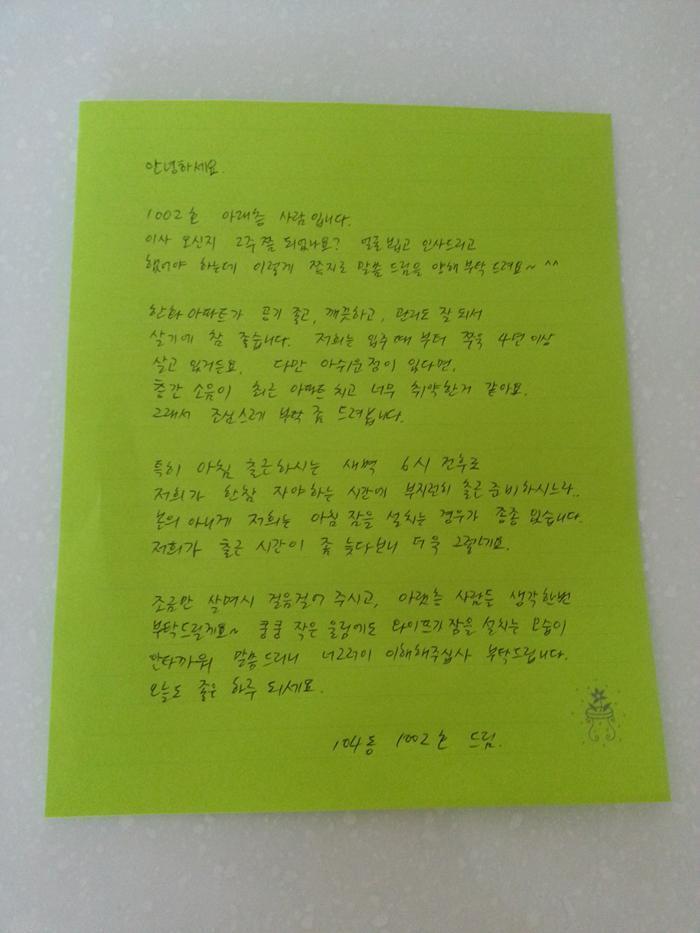 안녕하세요.
1002호 아래층 사람입니다.
이사 오신지 2주쯤 되었나요? 얼굴 뵙고 인사드리고
했어야 하는데 이렇게 쪽지로 말씀 드림을 양해 부탁 드려요~ ^^
한화 아파트가 공기 좋고, 깨끗하고, 관리도 잘 되서
살기에 참 좋습니다. 저희는 입주때 부터 쭈욱 4년 이상
살고 있거든요. 다만 아쉬운 점이 있다면,
층간 소음이 최근 아파트 치고 너무 취약한거 같아요.
그래서 조심스레 부탁 좀 드려봅니다.
특히 아침 출근하시는 새벽 6시 전후로
저희가 한참 자야하는 시간에 부지런히 출근 준비하시느라..
본의 아니게 저희는 아침 잠을 설치는 경우가 종종 있습니다.
저희가 출근 시간이 좀 늦다보니 더욱 그렇네요.
조금만 살며시 걸음걸어 주시고, 아랫층 사람들 생각 한번
부탁드릴게요~ 쿵쿵 작은 울림에도 와이프가 잠을 설치는 모습이
안타까워 말씀 드리니 너그러이 이해해주십사 부탁드립니다.
오늘도 좋은 하루 되세요.
104동 1002호 드림.